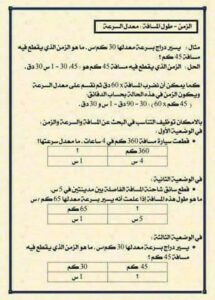 الزمن - طول المسافة : معدل السرعة
مثال : يسير دراج بسرعة معدلها 30 كم/س. ما هو الزمن الذي يقطع فيه
مسافة 45 كم؟
الحل : الزمن الذي يقطع فيه مسافة 45 كم هو : 45 : 30 = 1 س 30 دق.
كما يمكن أن نضرب المسافة في 60 دق ثم نقسم على السرعة
ويكون الزمن في هذه الحالة بحساب الدقائق.
( 45 كم x 60 ) : 30 = 1 س و 30 دق.
بالإمكان توظيف التناسب في البحث عن المسافة والسرعة والزمن.
في الوضعية الأولى :
• قطعت سيارة مسافة 360 كم في 4 ساعات. ما معدل سرعتها؟
360 كم ؟
4 س 1 س
في الوضعية الثانية :
• قطع سائق شاحنة المسافة الفاصلة بين مدينتين في 5 س.
ما هو طول هذه المسافة إذا علمت أنه يسير بسرعة معدلها 65 كم / س
؟ 65 كم
5 س 1 س
في الوضعية الثالثة :
• يسير دراج بسرعة معدلها 30 كم/س، ما هو الزمن الذي يقطع فيه
مسافة 45 كم؟
45 كم 30 كم
؟ 1 س